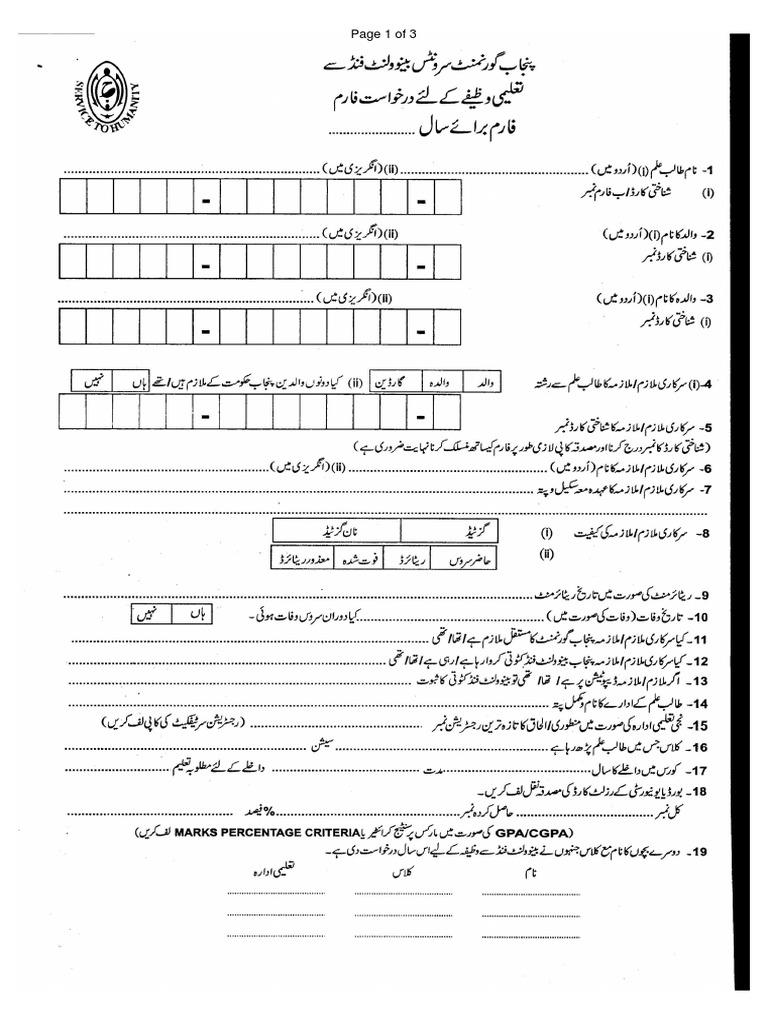 Page 1 of 3
پنجاب گورنمنٹ سرونٹس بینوولنٹ فنڈ سے
تعلیمی وظیفے کے لئے درخواست فارم
فارم برائے سال ........................
SERVICE TO HUMANITY
1- نام طالب علم (i) (اُردو میں) ........................ (ii) (انگریزی میں) ........................
(i) شناختی کارڈ/ب فارم نمبر - -
2- والد کا نام (i) (اُردو میں) (ii) (انگریزی میں) ........................
(i) شناختی کارڈ نمبر - -
3- والدہ کا نام (i) (اُردو میں) (ii) (انگریزی میں) ........................
(i) شناختی کارڈ نمبر - -
4- (i) سرکاری ملازم/ملازمہ کا طالب علم سے رشتہ والد والدہ گارڈین (ii) کیا دونوں والدین پنجاب حکومت کے ملازم ہیں/تھے ہاں نہیں
5- سرکاری ملازم/ملازمہ کا شناختی کارڈ نمبر - -
(شناختی کارڈ کا نمبر درج کرنا اور مصدقہ کاپی لازمی طور پر فارم کیساتھ منسلک کرنا نہایت ضروری ہے)
6- سرکاری ملازم/ملازمہ کا نام (اُردو میں) ........................ (ii) (انگریزی میں) ........................
7- سرکاری ملازم/ملازمہ کا عہدہ معہ سکیل و پتہ ........................
8- سرکاری ملازم/ملازمہ کی کیفیت (i) گزٹیڈ نان گزٹیڈ
(ii) حاضر سروس ریٹائرڈ فوت شدہ معذور ریٹائرڈ
9- ریٹائرمنٹ کی صورت میں تاریخ ریٹائرمنٹ ........................
10- تاریخ وفات (وفات کی صورت میں) ........................ کیا دوران سروس وفات ہوئی- ہاں نہیں
11- کیا سرکاری ملازم/ملازمہ پنجاب گورنمنٹ کا مستقل ملازم ہے/تھا/تھی ........................
12- کیا سرکاری ملازم/ملازمہ پنجاب بینوولنٹ فنڈ کٹوتی کروا رہا ہے/رہی ہے/تھا/تھی ........................
13- اگر ملازم/ملازمہ ڈیپوٹیشن پر ہے/تھا/تھی تو بینوولنٹ فنڈ کٹوتی کا ثبوت ........................
14- طالب علم کے ادارے کا نام و مکمل پتہ ........................
15- نجی تعلیمی ادارہ کی صورت میں منظوری/الحاق کا تازہ ترین رجسٹریشن نمبر ........................ (رجسٹریشن سرٹیفکیٹ کی کاپی لف کریں)
16- کلاس جس میں طالب علم پڑھ رہا ہے ........................ سیشن ........................
17- کورس میں داخلے کا سال ........................ مدت ........................ داخلے کے لئے مطلوبہ تعلیم ........................
18- بورڈ یا یونیورسٹی کے رزلٹ کارڈ کی مصدقہ نقل لف کریں-
کل نمبر ........................ حاصل کردہ نمبر ........................ %فیصد ........................
(GPA/CGPA کی صورت میں مارکس پرسنٹیج کرائٹیریا MARKS PERCENTAGE CRITERIA لف کریں)
19- دوسرے بچوں کا نام مع کلاس جنہوں نے بینوولنٹ فنڈ سے وظیفہ کے لیے اس سال درخواست دی ہے-
نام کلاس تعلیمی ادارہ